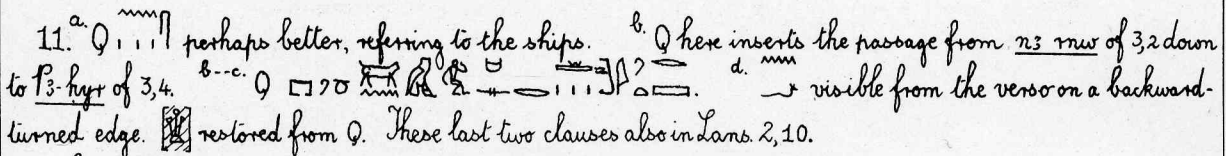 11. a. Q perhaps better, referring to the ships. b. Q here inserts the passage from n3 of 3,2 down
to P3-ḥyr of 3,4. b--c. Q d. visible from the verso on a backward-
turned edge. restored from Q. These last two clauses also in Lans. 2,10.